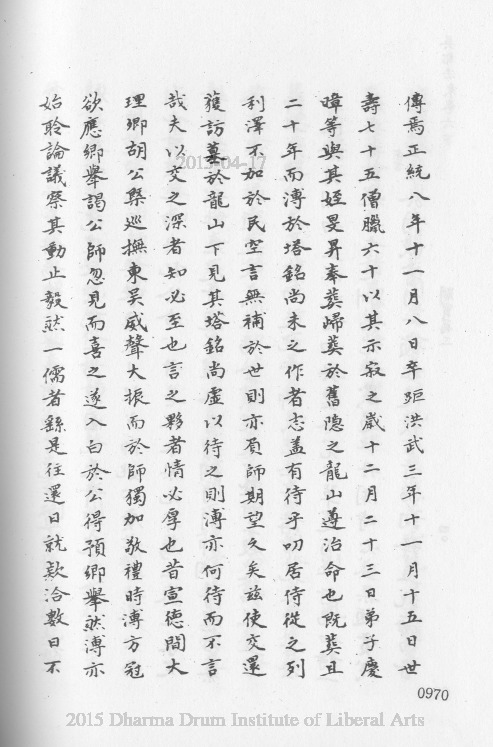 傳焉正統八年十一月八日卒距洪武三年十一月十五日世
壽七十五僧臘六十以其示寂之歲十二月二十三日弟子慶
暐等與其姪旻昇奉葬歸葬於舊隱之龍山遵治命也既葬且
二十年而溥於塔銘尚未之作者志蓋有待乎叨居侍從之列
利澤不加於民空言無補於世則亦負師期望久矣茲使交還
獲訪墓於龍山下見其塔銘尚虛以待之則溥亦何待而不言
哉夫以交之深者知必至也言之夥者情必厚也昔宣德間大
理卿胡公槩巡撫東吳威聲大振而於師獨加敬禮時溥方冠
欲應鄉舉謁公師忽見而喜之遂入白於公得預鄉舉然溥亦
始聆論議祭其動止毅然一儒者繇是往還日就款洽數日不
0970
2013-04-17
2015 Dharma Drum Institute of Liberal Arts